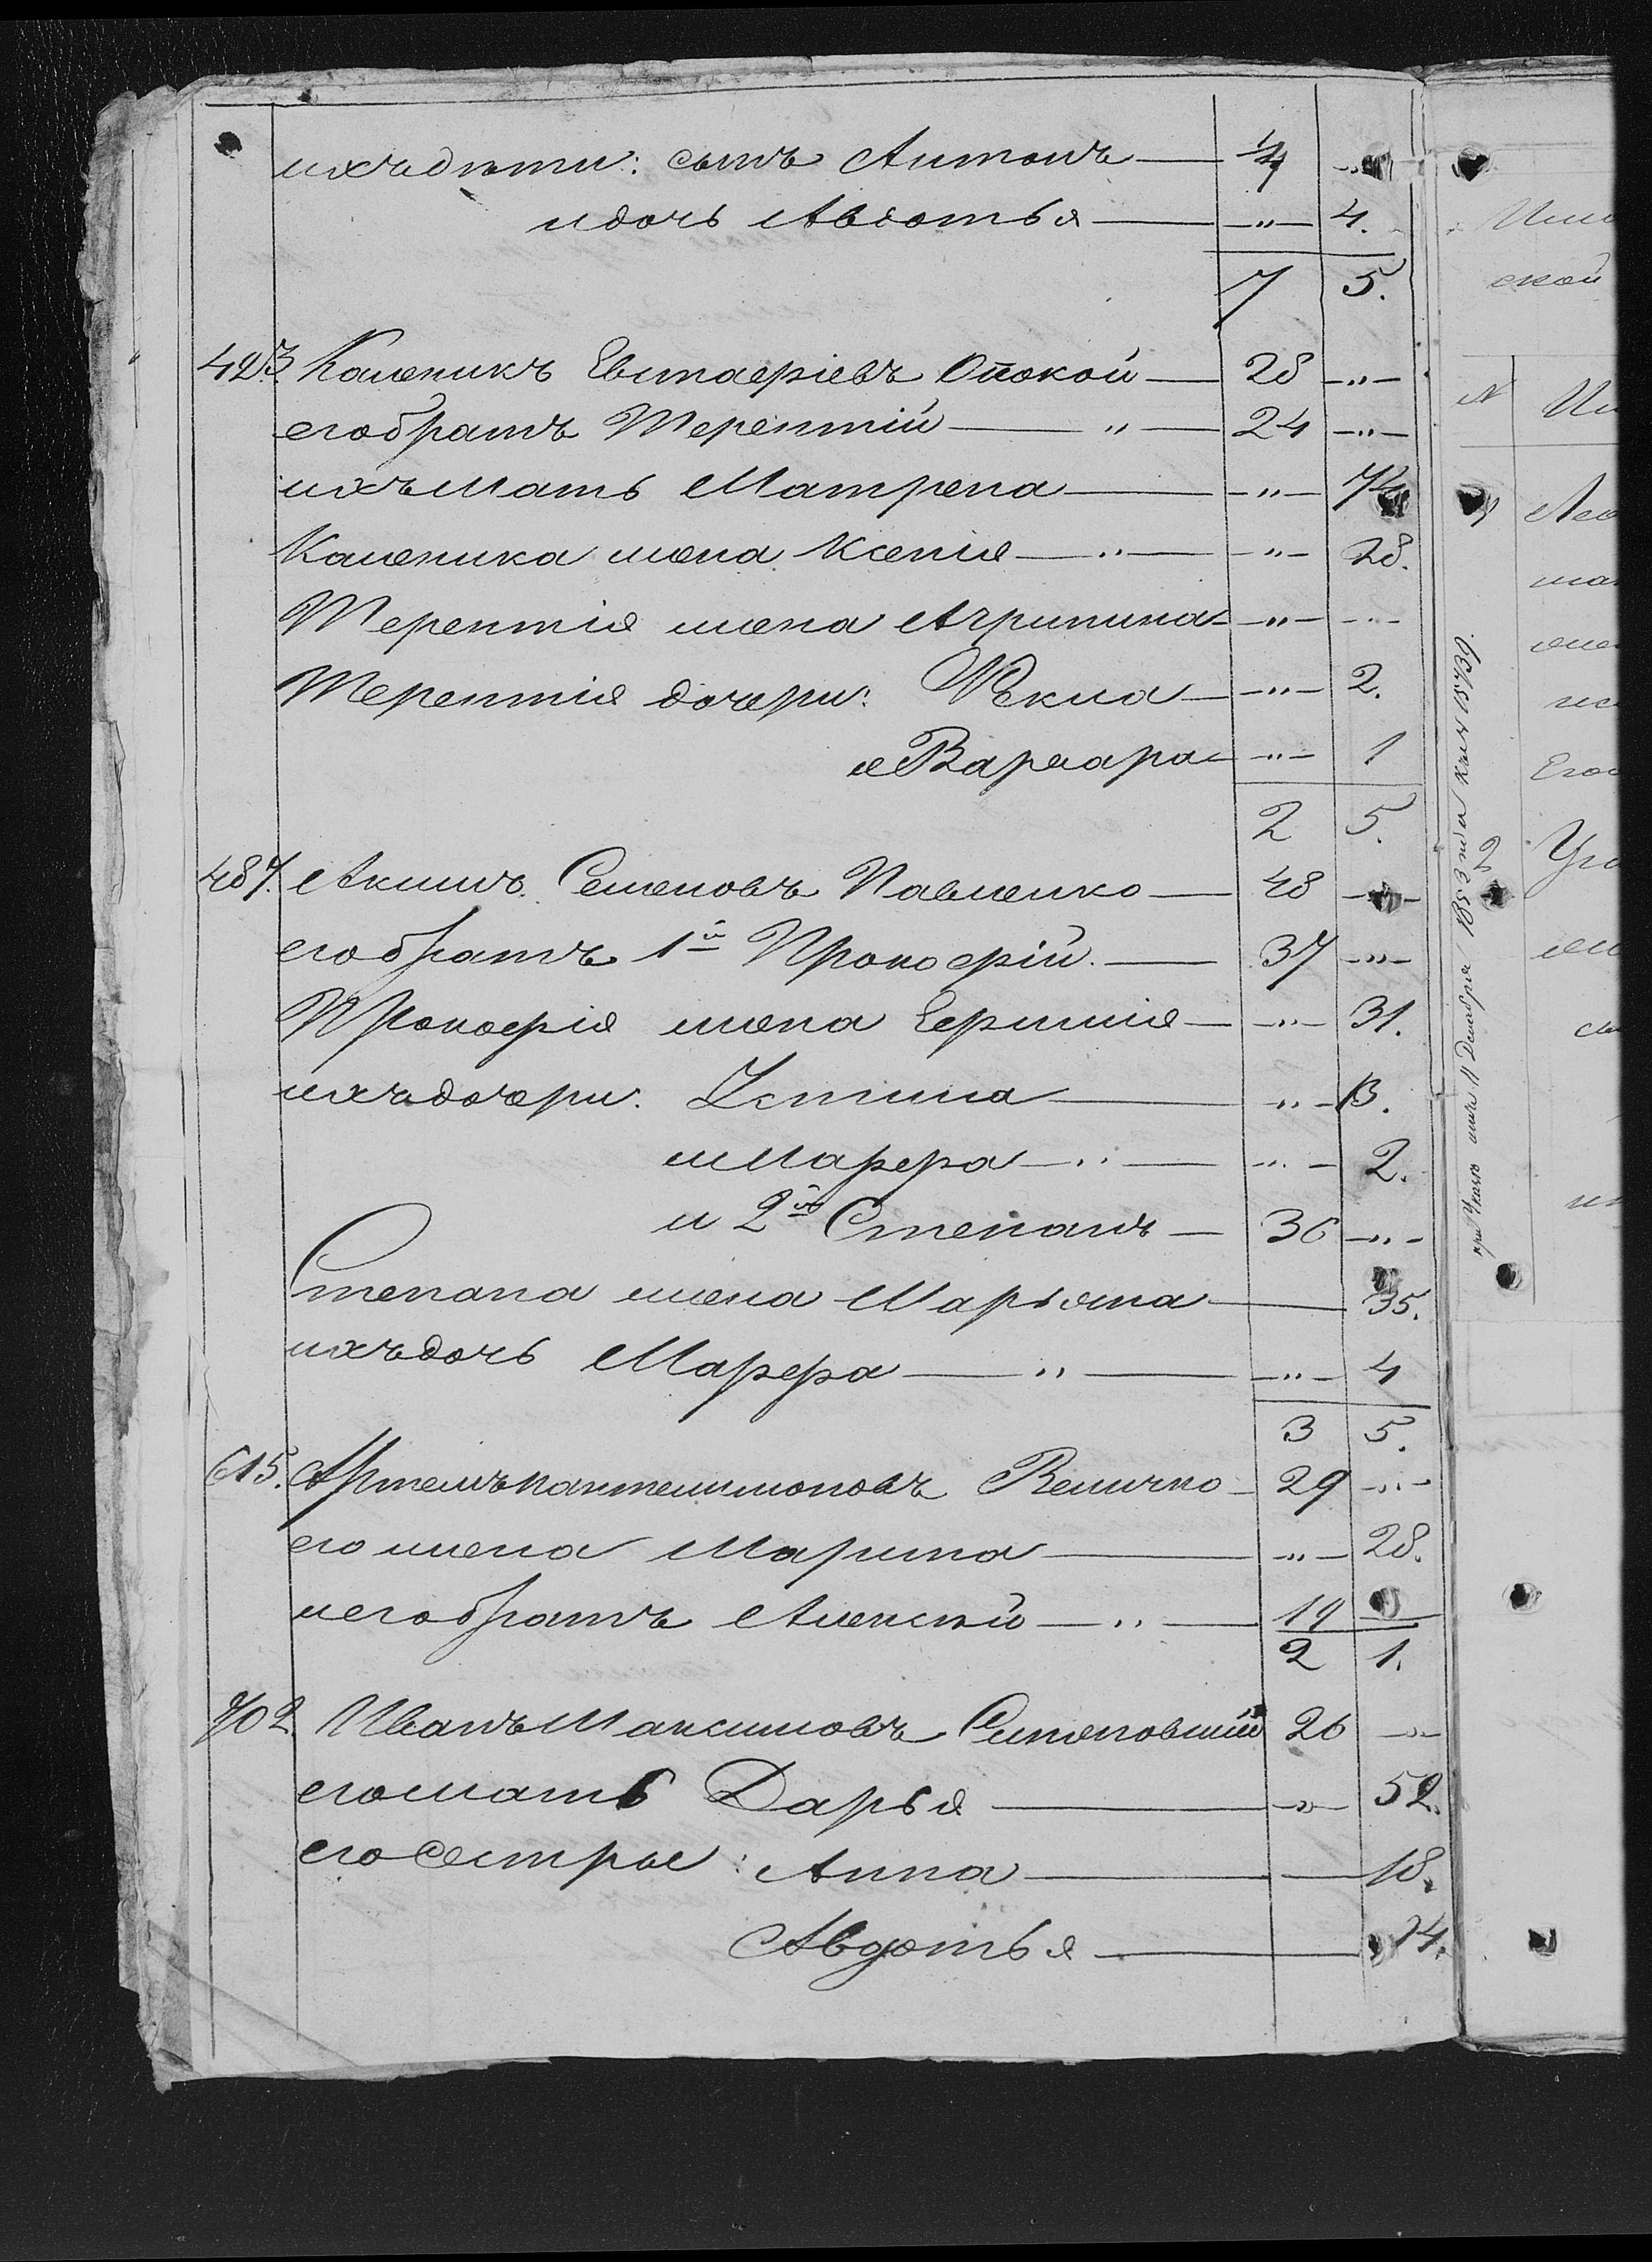 ихъ дѣти: сынъ Антонъ — 4 —"—
и дочь Авдотья — —"— 4.
7 5.
423. Каленикъ Евстафіевъ Опокой — 28 —"—
его братъ Терентій — " — 24 —"—
ихъ мать Матрена — —"— 74
Каленика жена Ксенія — " — —"— 28.
Терентія жена Агрипина — —"— —"—
Терентія дочери: Ѳекла — —"— 2.
и Варвара — —"— 1
2 5.
487. Акимъ Семеновъ Павленко — 48 —"—
его братъ 1й Прокофій. — 37 —"—
Прокофія жена Евфимія — —"— 31.
ихъ дочери: Устина — " — 13.
и Марфа — " — —"— 2.
и 2й Степанъ — 36 —"—
Степана жена Марьяна — 35.
ихъ дочь Марфа — " — —"— 4
3 5.
615. Артемъ Пантелимоновъ Величко — 29 —"—
его жена Марина — —"— 28.
и его братъ Алексѣй — " — 19 —
2 1.
702. Иванъ Максимовъ 26 —"—
его мать Дарья — —"— 52.
его сестры: Анна — — 18.
Авдотья — 14.
при Указѣ 11 Декабря 1853 года